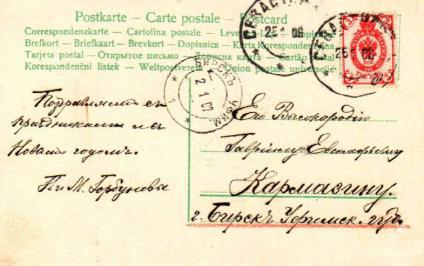 Postkarte – Carte postale – Postcard
Correspondenzkarte – Cartolina postale –
Brefkort – Briefkaart – Brevkort – Dopisnica – Karta Korespondencyjna
Tarjeta postal – Открытое письмо –
Korespondenční listek – Weltpostverein – postale universelle
Поздравляемъ съ
праздникомъ и съ
Новымъ годомъ.
П. и М. Горбуновы
Его Высокородію
Гавріилу
Кармазину
г. Бирскъ Уфимск. губ.